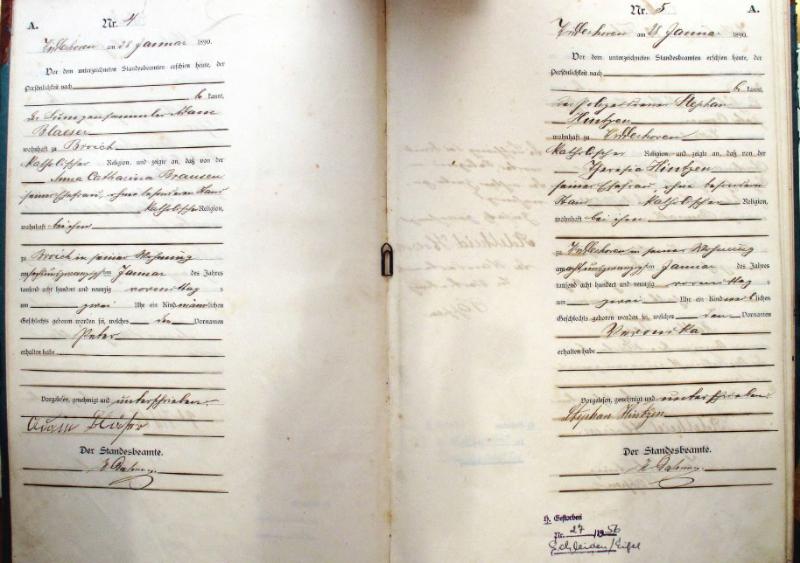 A.
Nr. 4
am 28 Januar 1890.
Vor dem unterzeichneten Standesbeamten erschien heute, der
Persönlichkeit nach
be kannt,
der Adam
Blaeser
wohnhaft zu Broich
katholischer Religion, und zeigte an, daß von der
Anna Catharina Braunen
seiner Ehefrau, ohne besonderen Stand
katholischer Religion,
wohnhaft bei ihm
zu Broich in seiner Wohnung
am achtundzwanzigsten Januar des Jahres
tausend acht hundert und neunzig vormittags
um zwei Uhr ein Kind männlichen
Geschlechts geboren worden sei, welches den Vornamen
Peter
erhalten habe
Vorgelesen, genehmigt und unterschrieben.
Bläser
Der Standesbeamte.
Nr. 5
A.
am 28 Januar 1890.
Vor dem unterzeichneten Standesbeamten erschien heute, der
Persönlichkeit nach
be kannt,
der Stephan
Hintzen
wohnhaft zu
katholischer Religion, und zeigte an, daß von der
Theresia Hintzen
seiner Ehefrau, ohne besonderen
Stand katholischer Religion,
wohnhaft bei ihm
zu in seiner Wohnung
am achtundzwanzigsten Januar des Jahres
tausend acht hundert und neunzig vormittags
um zwei Uhr ein Kind weiblichen
Geschlechts geboren worden sei, welches den Vornamen
Veronika
erhalten habe
Vorgelesen, genehmigt und unterschrieben.
Stephan Hintzen
Der Standesbeamte.
Gestorben
Nr. 27 /1956
Schleiden/Eifel